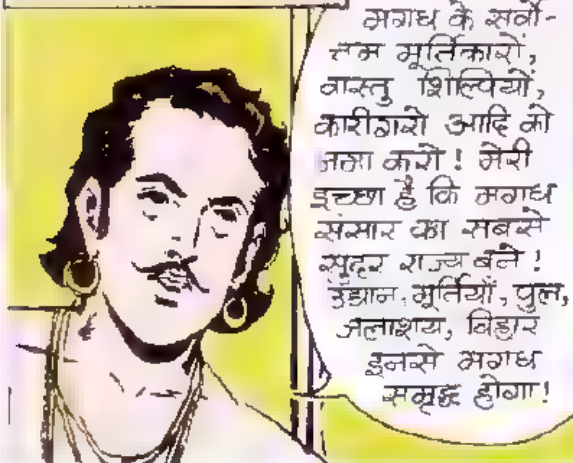 मगध के सर्वो-
त्तम मूर्तिकारों,
वास्तु शिल्पियों,
कारीगरो आदि को
जमा करो! मेरी
इच्छा है कि मगध
संसार का सबसे
सुंदर राज्य बने!
उद्यान, मूर्तियाँ, पुल,
जलाशय, विहार
इनसे मगध
समृद्ध होगा!